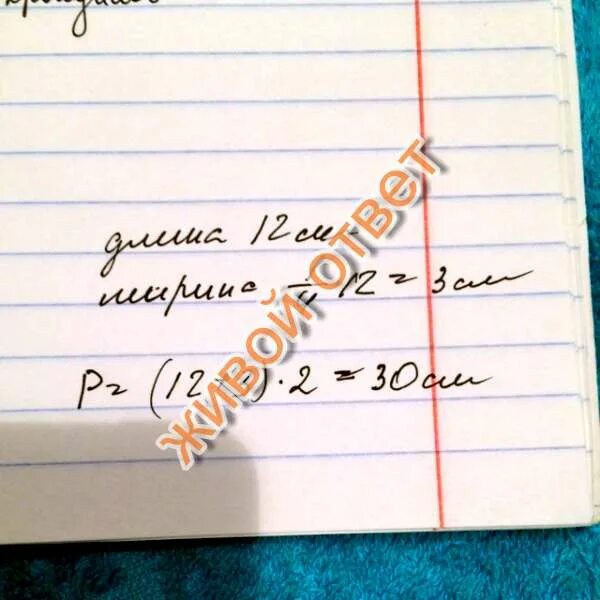 длина 12 см
ширина 12 = 3 см
P = (12 ) · 2 = 30 см
ЖИВОЙ ОТВЕТ